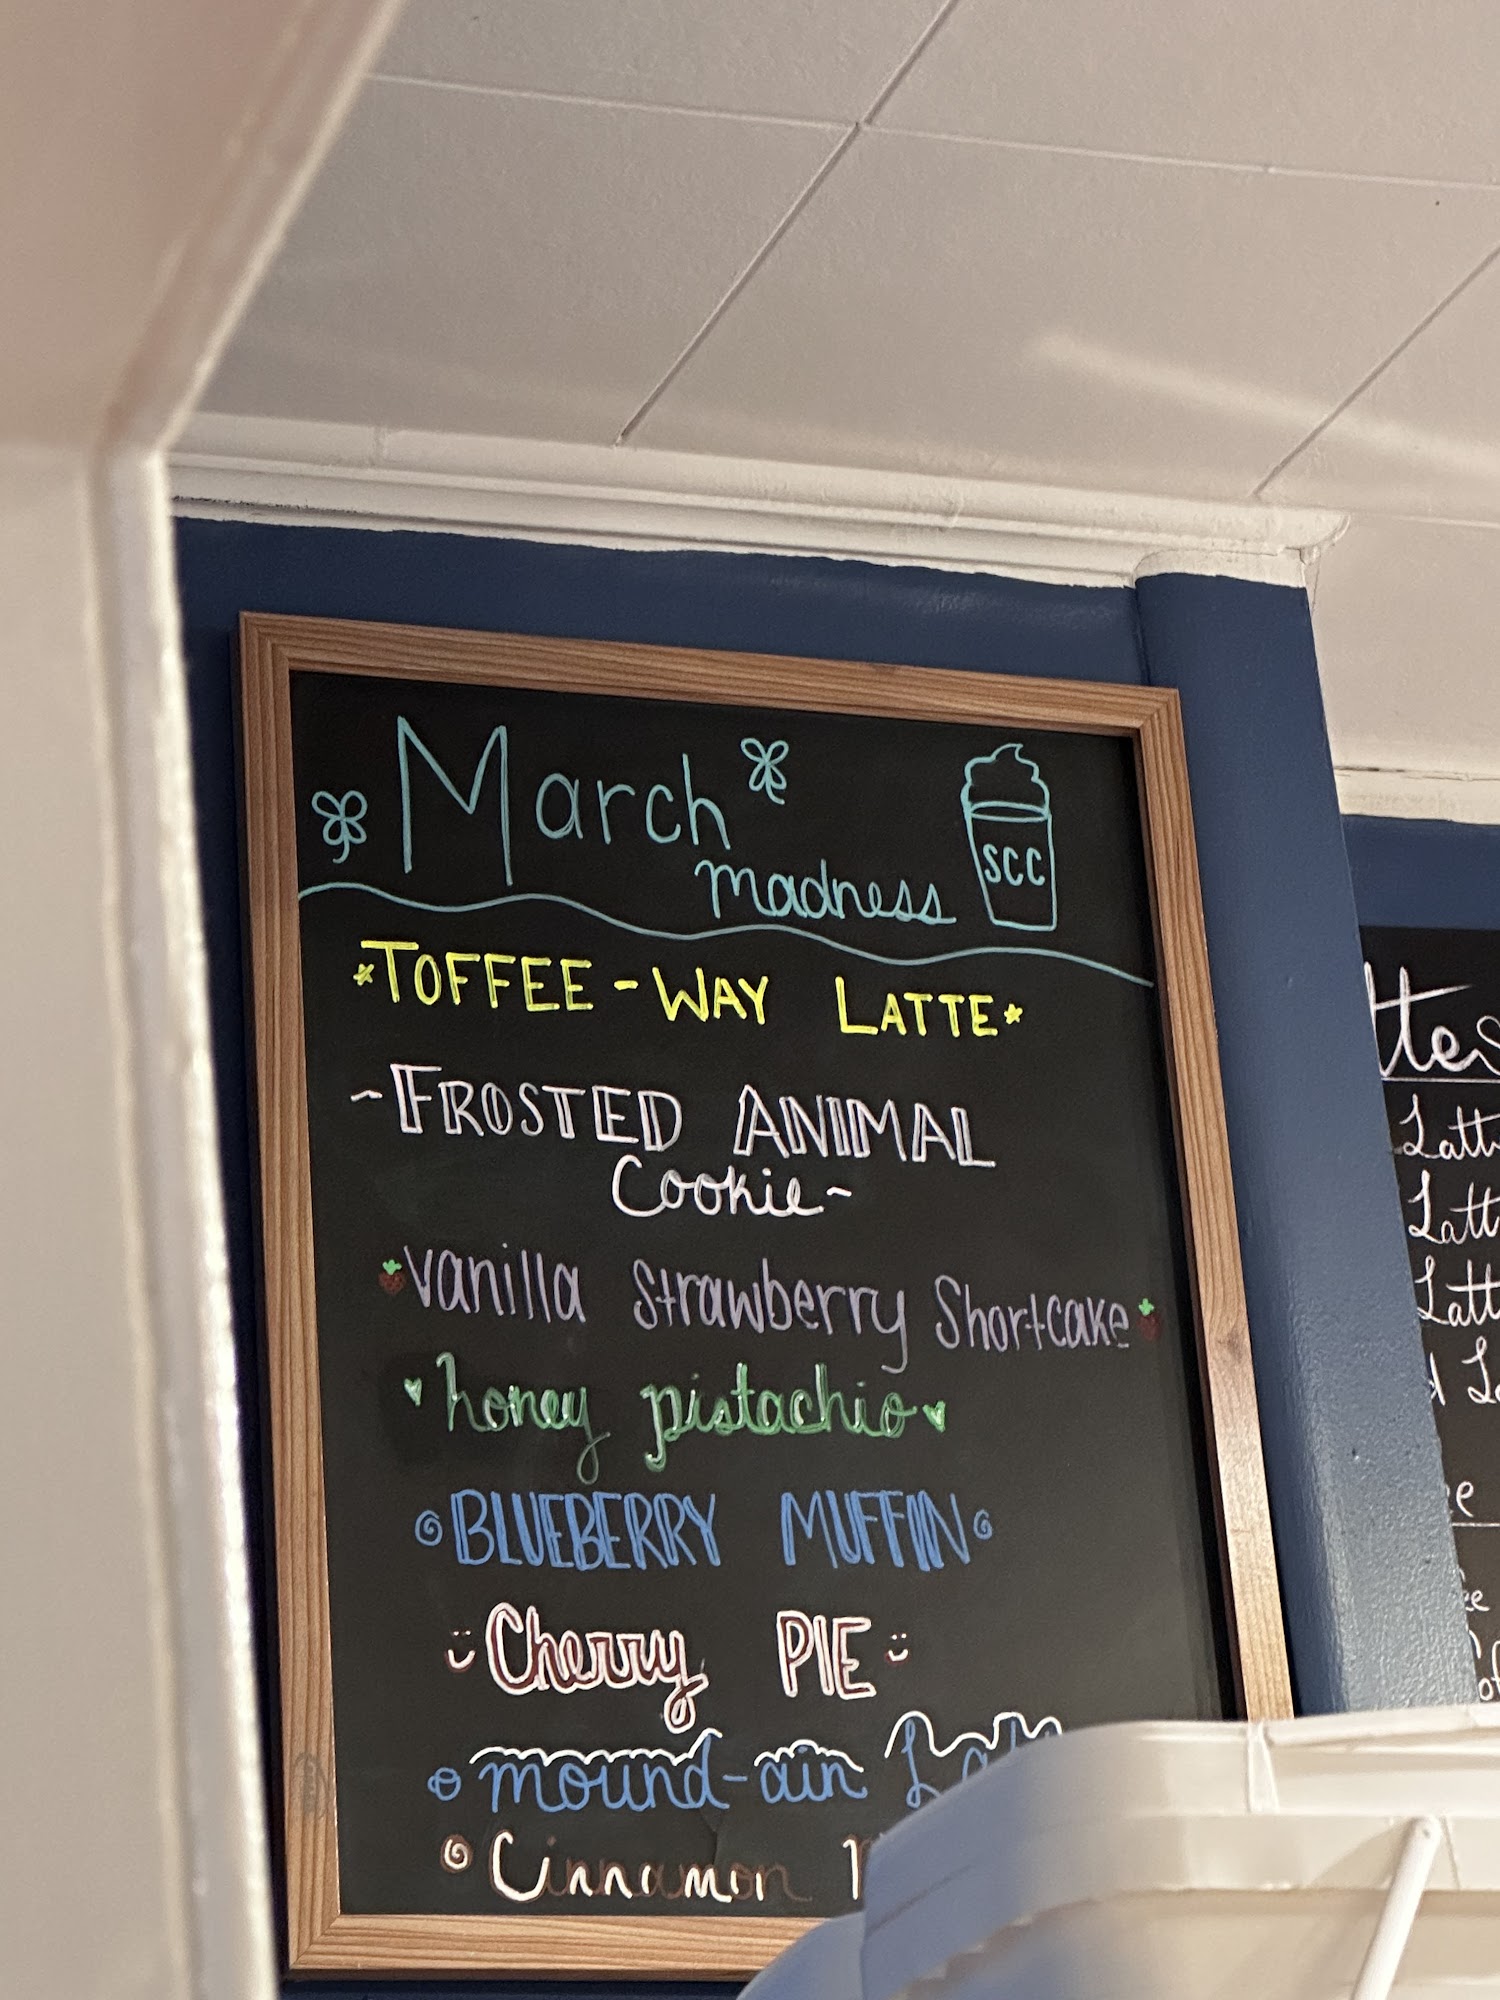 March
madness
SCC
TOFFEE-WAY LATTE
~FROSTED ANIMAL
Cookie~
vanilla strawberry shortcake
honey pistachio
BLUEBERRY MUFFIN
Cherry PIE
mound-ain
Cinnamon
Latt
Latt
Latt